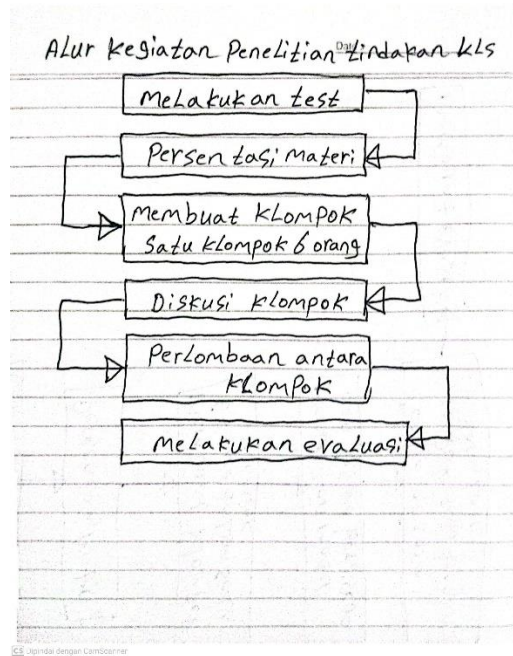 Alur kegiatan Penelitian tindakan kls
Melakukan test
Persentasi materi
Membuat klompok
Satu klompok 6 orang
Diskusi klompok
Perlombaan antara
klompok
Melakukan evaluasi
CS Dipindai dengan CamScanner